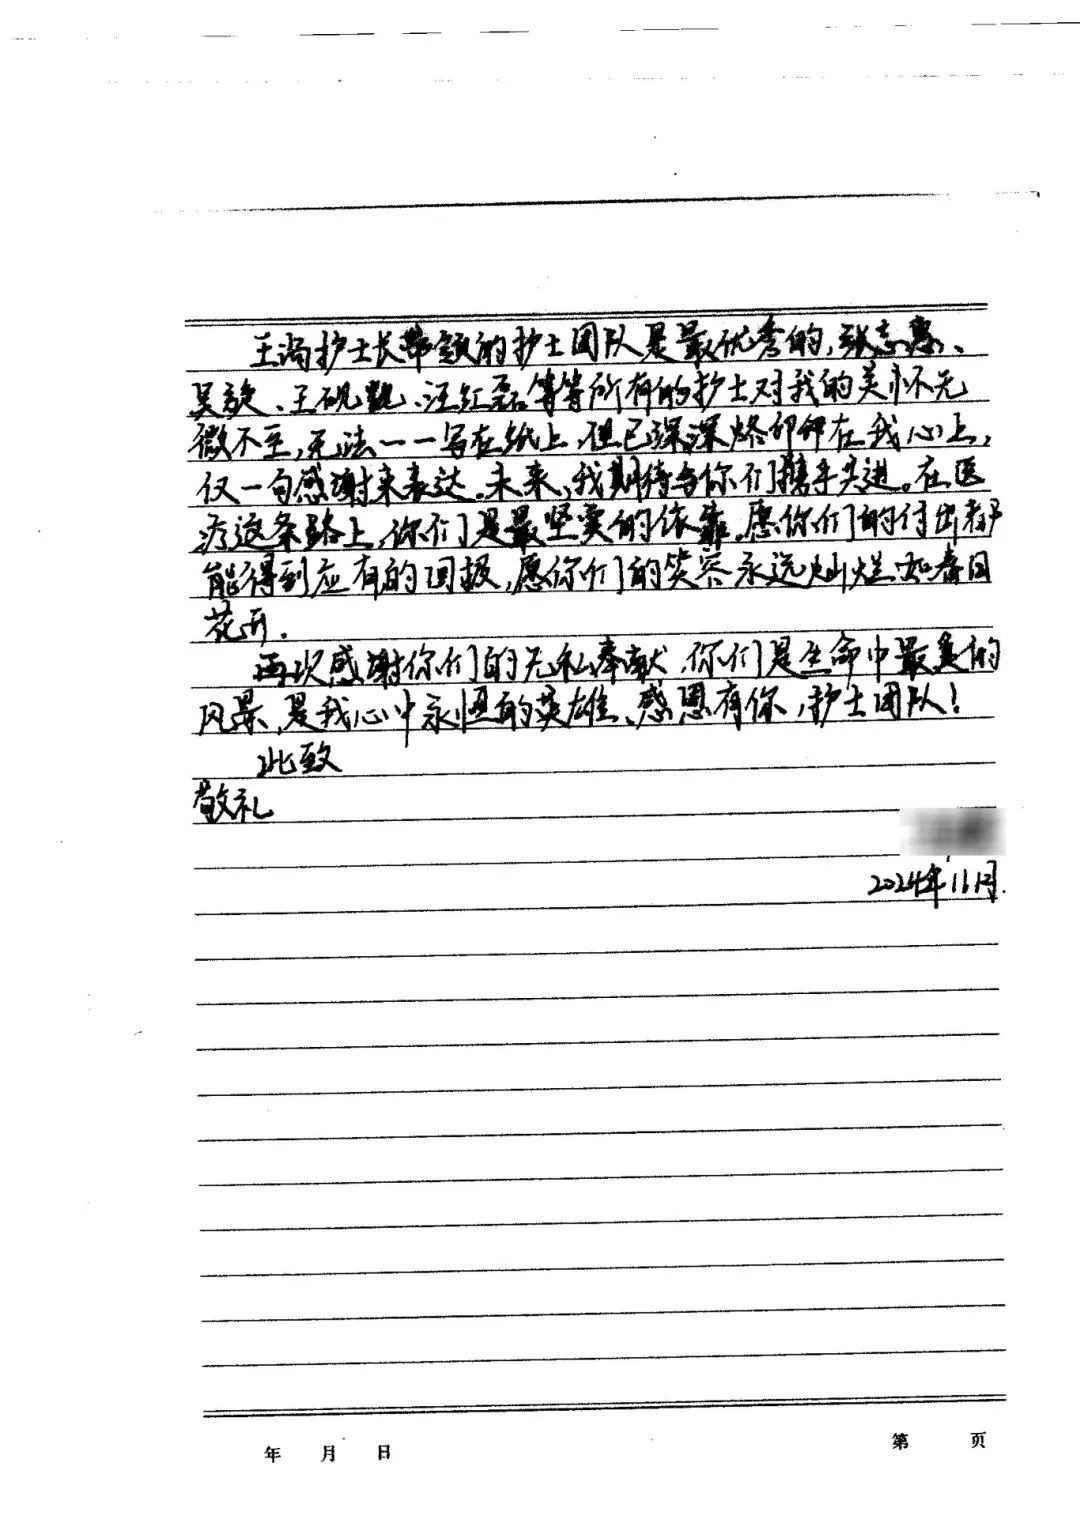 王 护士长带领的护士团队是最优秀的,张志惠、
吴旋、王砚 、汪红磊等等所有的护士对我的关怀无
微不至,无法一一写在纸上,但已深深烙印在我心上,
仅一句感谢来表达。未来,我期待与你们携手共进。在医
疗这条路上,你们是最坚实的依靠。愿你们的付出都
能得到应有的回报,愿你们的笑容永远灿烂如春日
花开.
再次感谢你们的无私奉献.你们是生命中最美的
风景,是我心中永恒的英雄、感恩有你,护士团队!
此致
敬礼
2024年11月.
年 月 日 第 页